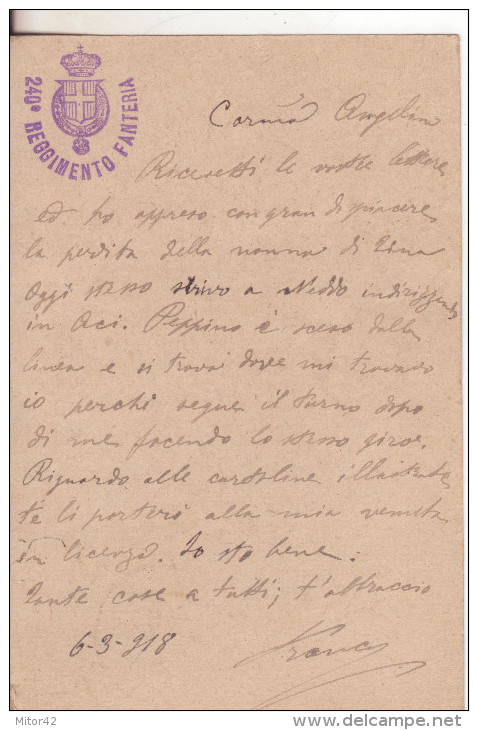 240° REGGIMENTO FANTERIA
Angelina
Ricevetti le vostre lettere
ed ho appreso con gran dispiacere
la perdita della nonna di
Oggi stesso scrivo a Neddo indirizzando
in Aci. Peppino è sceso dalla
linea e si trova dove mi trovavo
io perchè segue il turno dopo
di me facendo lo stesso giro.
Riguardo alle cartoline illustrate
te li porterò alla mia venuta
in licenza. Io sto bene.
Tante cose a tutti; t'abbraccio
6-3-918
Mitor42
delcampe.net